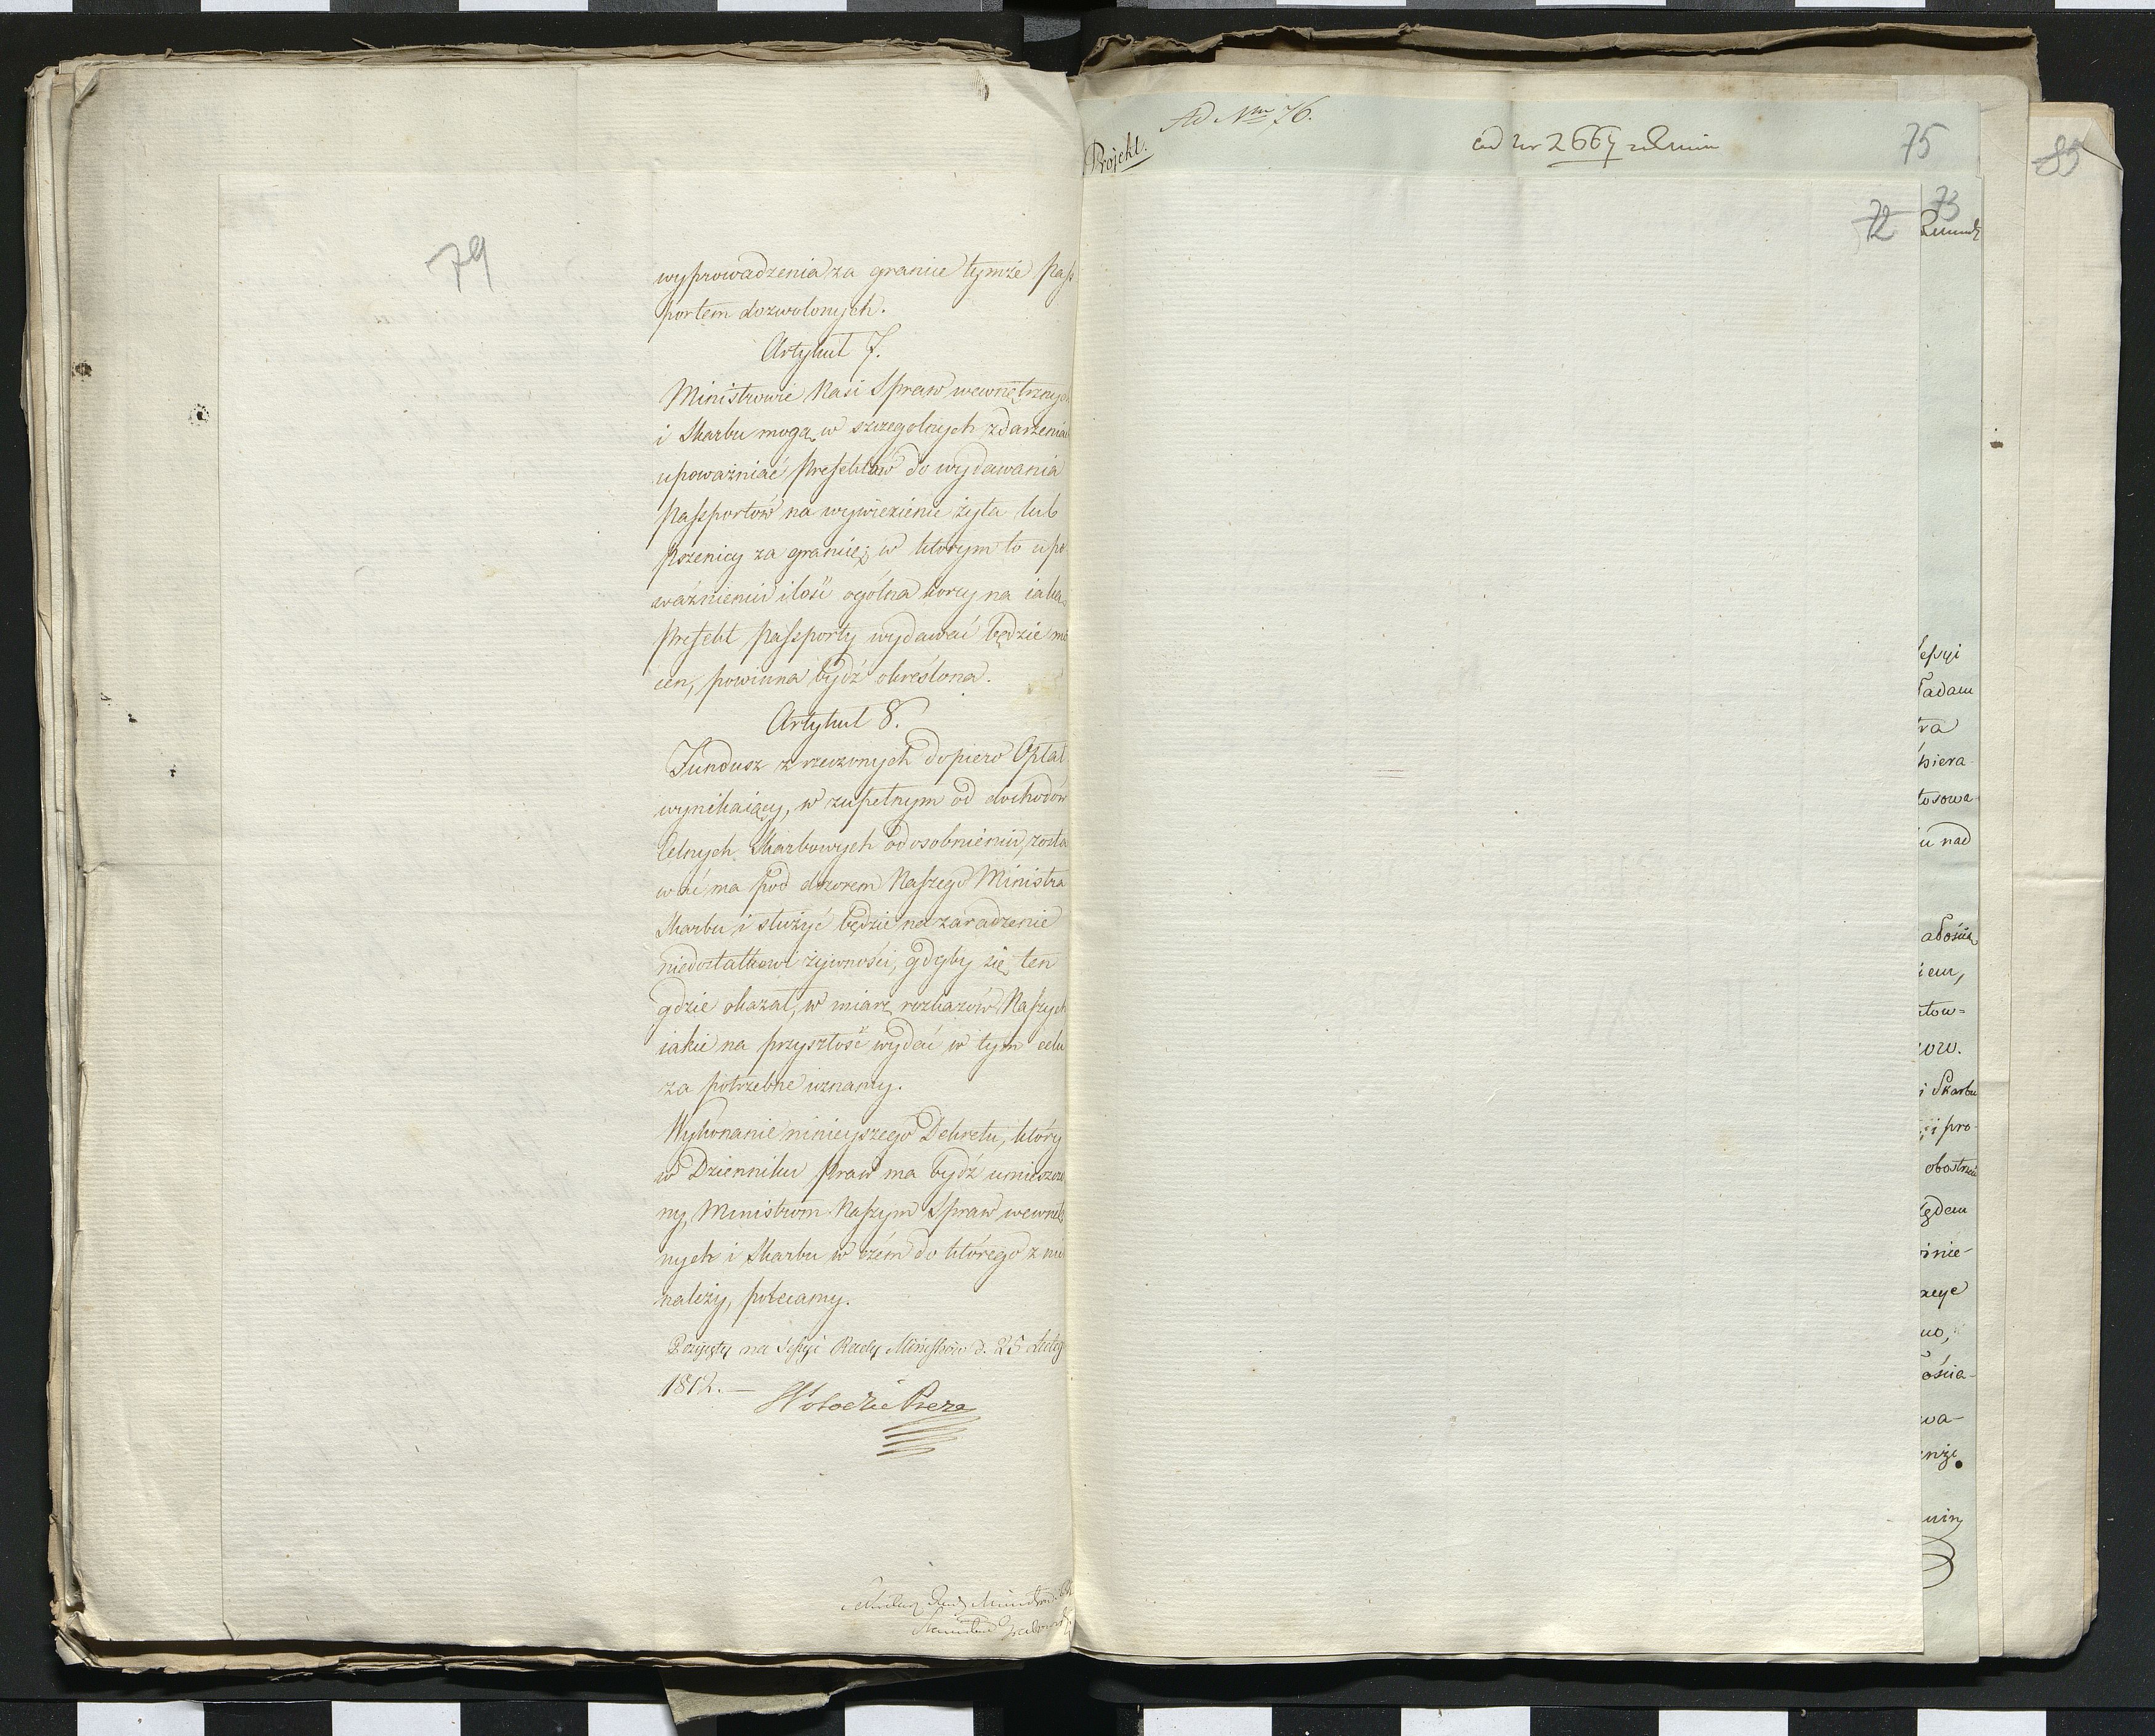 79
wyprowadzenia za granice tymże pass
portem dozwolonych.
Artykuł 7.
Ministrowie Nasi Spraw wewnętrznych
i Skarbu mogą w szczegolnych zdarzenia
upoważniać Prefektów do wydawania
passportów na wywiezienie żyta lub
pszenicy za granicę; w którym to upo
ważnieniu ilość ogólna korcy na iaką
Prefekt passporty wydawać będzie mo
cen, powinna bydź określona.
Artykuł 8.
Fundusz z rzeczonych dopiero Opłat
wynikaiący, w zupełnym od dochodów
Celnych Skarbowych odosobnieniu, zosta
wać ma pod dozorem Naszego Ministra
Skarbu i służyć będzie na zaradzenie
niedostatkowi żywności, gdyby się ten
gdzie okazał, w miarę rozkazów Naszych
iakie na przyszłość wydać w tym celu
za potrzebne uznamy.
Wykonanie ninieyszego Dekretu, który
w Dzienniku Praw ma bydź umieszczo
ny, Ministrom Naszym Spraw wewnętrz
nych i Skarbu w czém do którego z nich
należy, polecamy.
Przyięty na Sessyi Rady Ministrów d. 25 Lutego
1812. —
Ad Nrm 76.
Projekt.
ad nr 2667
75
85
73
72
sessyi
ładam
tra
spiera
tosowa
u nad
ałością
iem,
ntow=
ow.
i Skarbu
i pro-
obostrze
ędem
inie-
acye
no,
ościa-
wa-